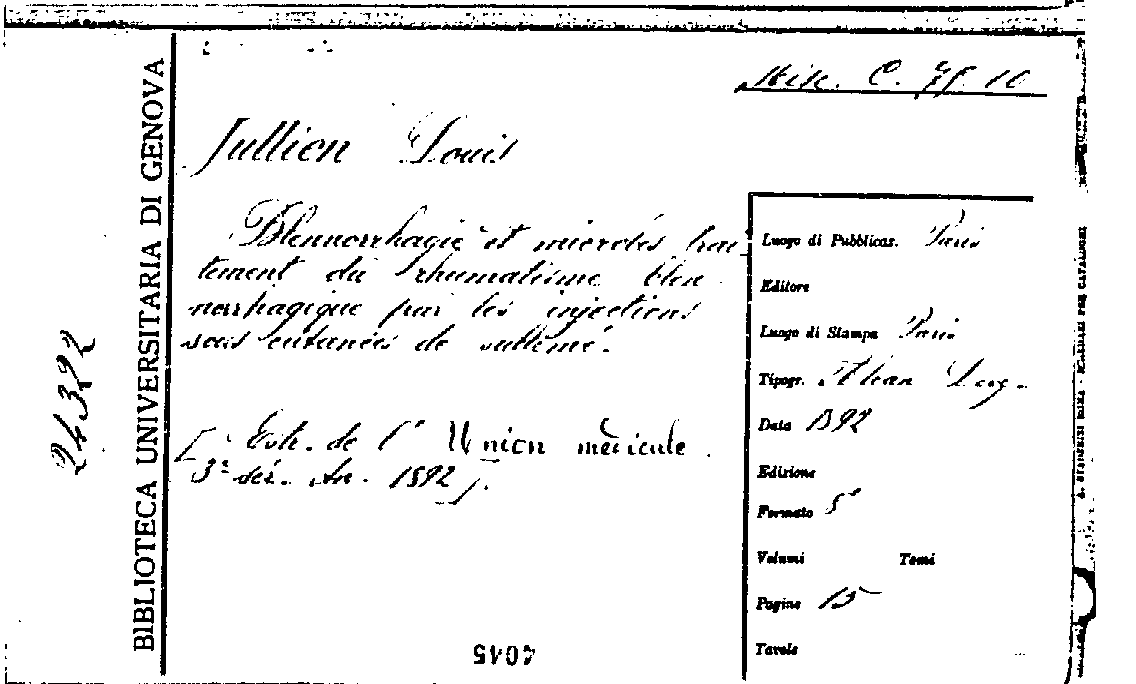 Misc. C. 75. 10
Jullien Louis
Blennorrhagie et microbes trai
tement du rhumatisme blen
norrhagique par les injections
sous cutanées de sublimé.
[Estr. de l' Union médicale.
3ᵉ sér. An. 1892].
Luogo di Pubblicaz. Paris
Editore
Luogo di Stampa Paris
Tipogr. Alcan Lévy
Data 1892
Edizione
Formato 8°
Volumi Tomi
Pagine 15
Tavole
BIBLIOTECA UNIVERSITARIA DI GENOVA
24322
4045